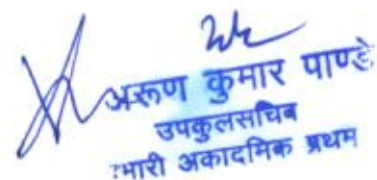 अरूण कुमार पाण्डे
उपकुलसचिव
भारी अकादमिक प्रथम